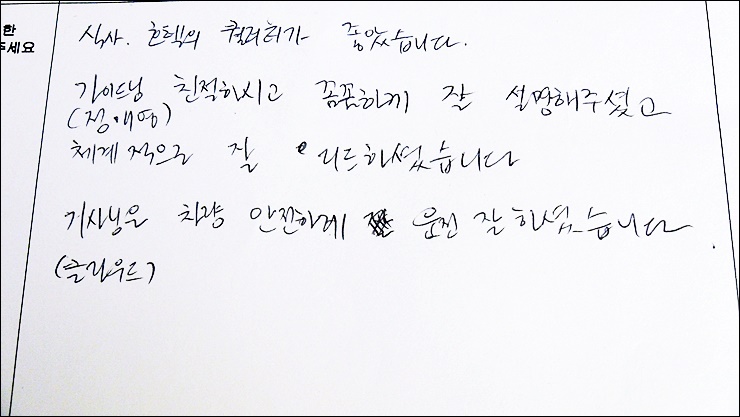 한
주세요
식사. 호텔의 퀄리티가 좋았습니다.
가이드님 친절하시고 꼼꼼하게 잘 설명해주셨고
(정애영)
체계적으로 잘 리드하셨습니다
기사님은 차량 안전하게 운전 잘 하셨습니다
(클라우드)